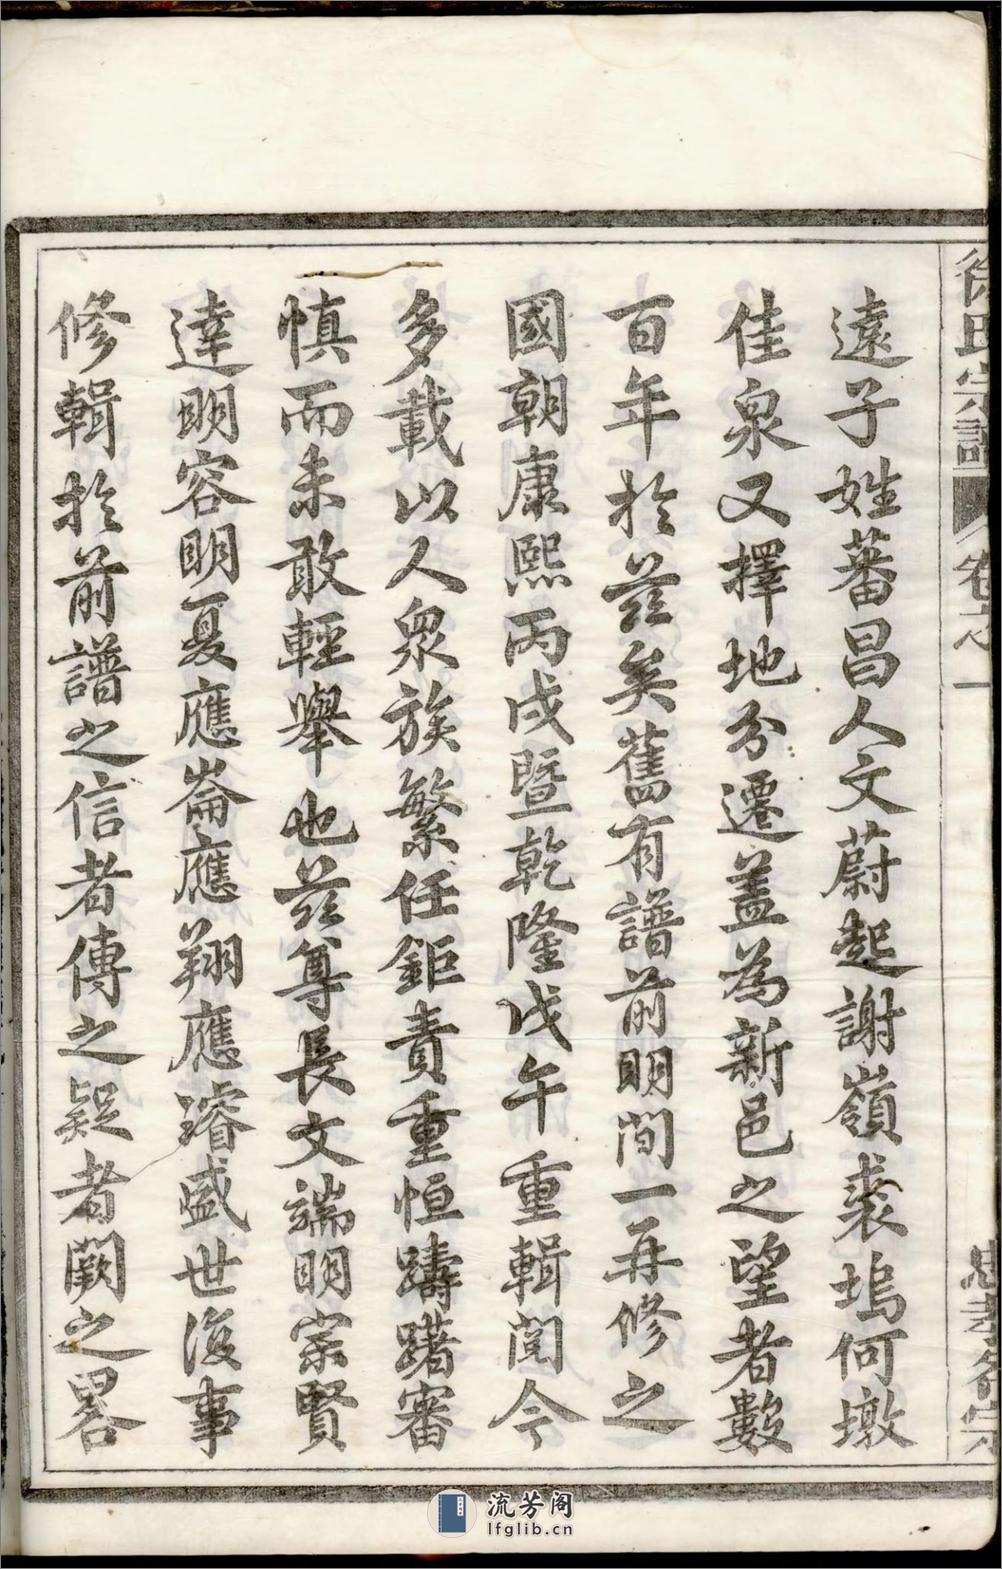 徐氏宗譜
卷之一
遠子姓蕃昌人文蔚起謝嶺裘塢何墩
佳泉又擇地分遷盖為新邑之望者數
百年於茲矣舊有譜前明間一再修之
國朝康熙丙戌暨乾隆戊午重輯閱今
多載以人眾族繁任鉅責重恒躊躇審
慎而未敢輕舉也茲尊長文端明宗賢
達明容明夏應崙應翔應璿盛世後事
修輯於前譜之信者傳之疑者闕之畧
流芳阁
lfglib.cn